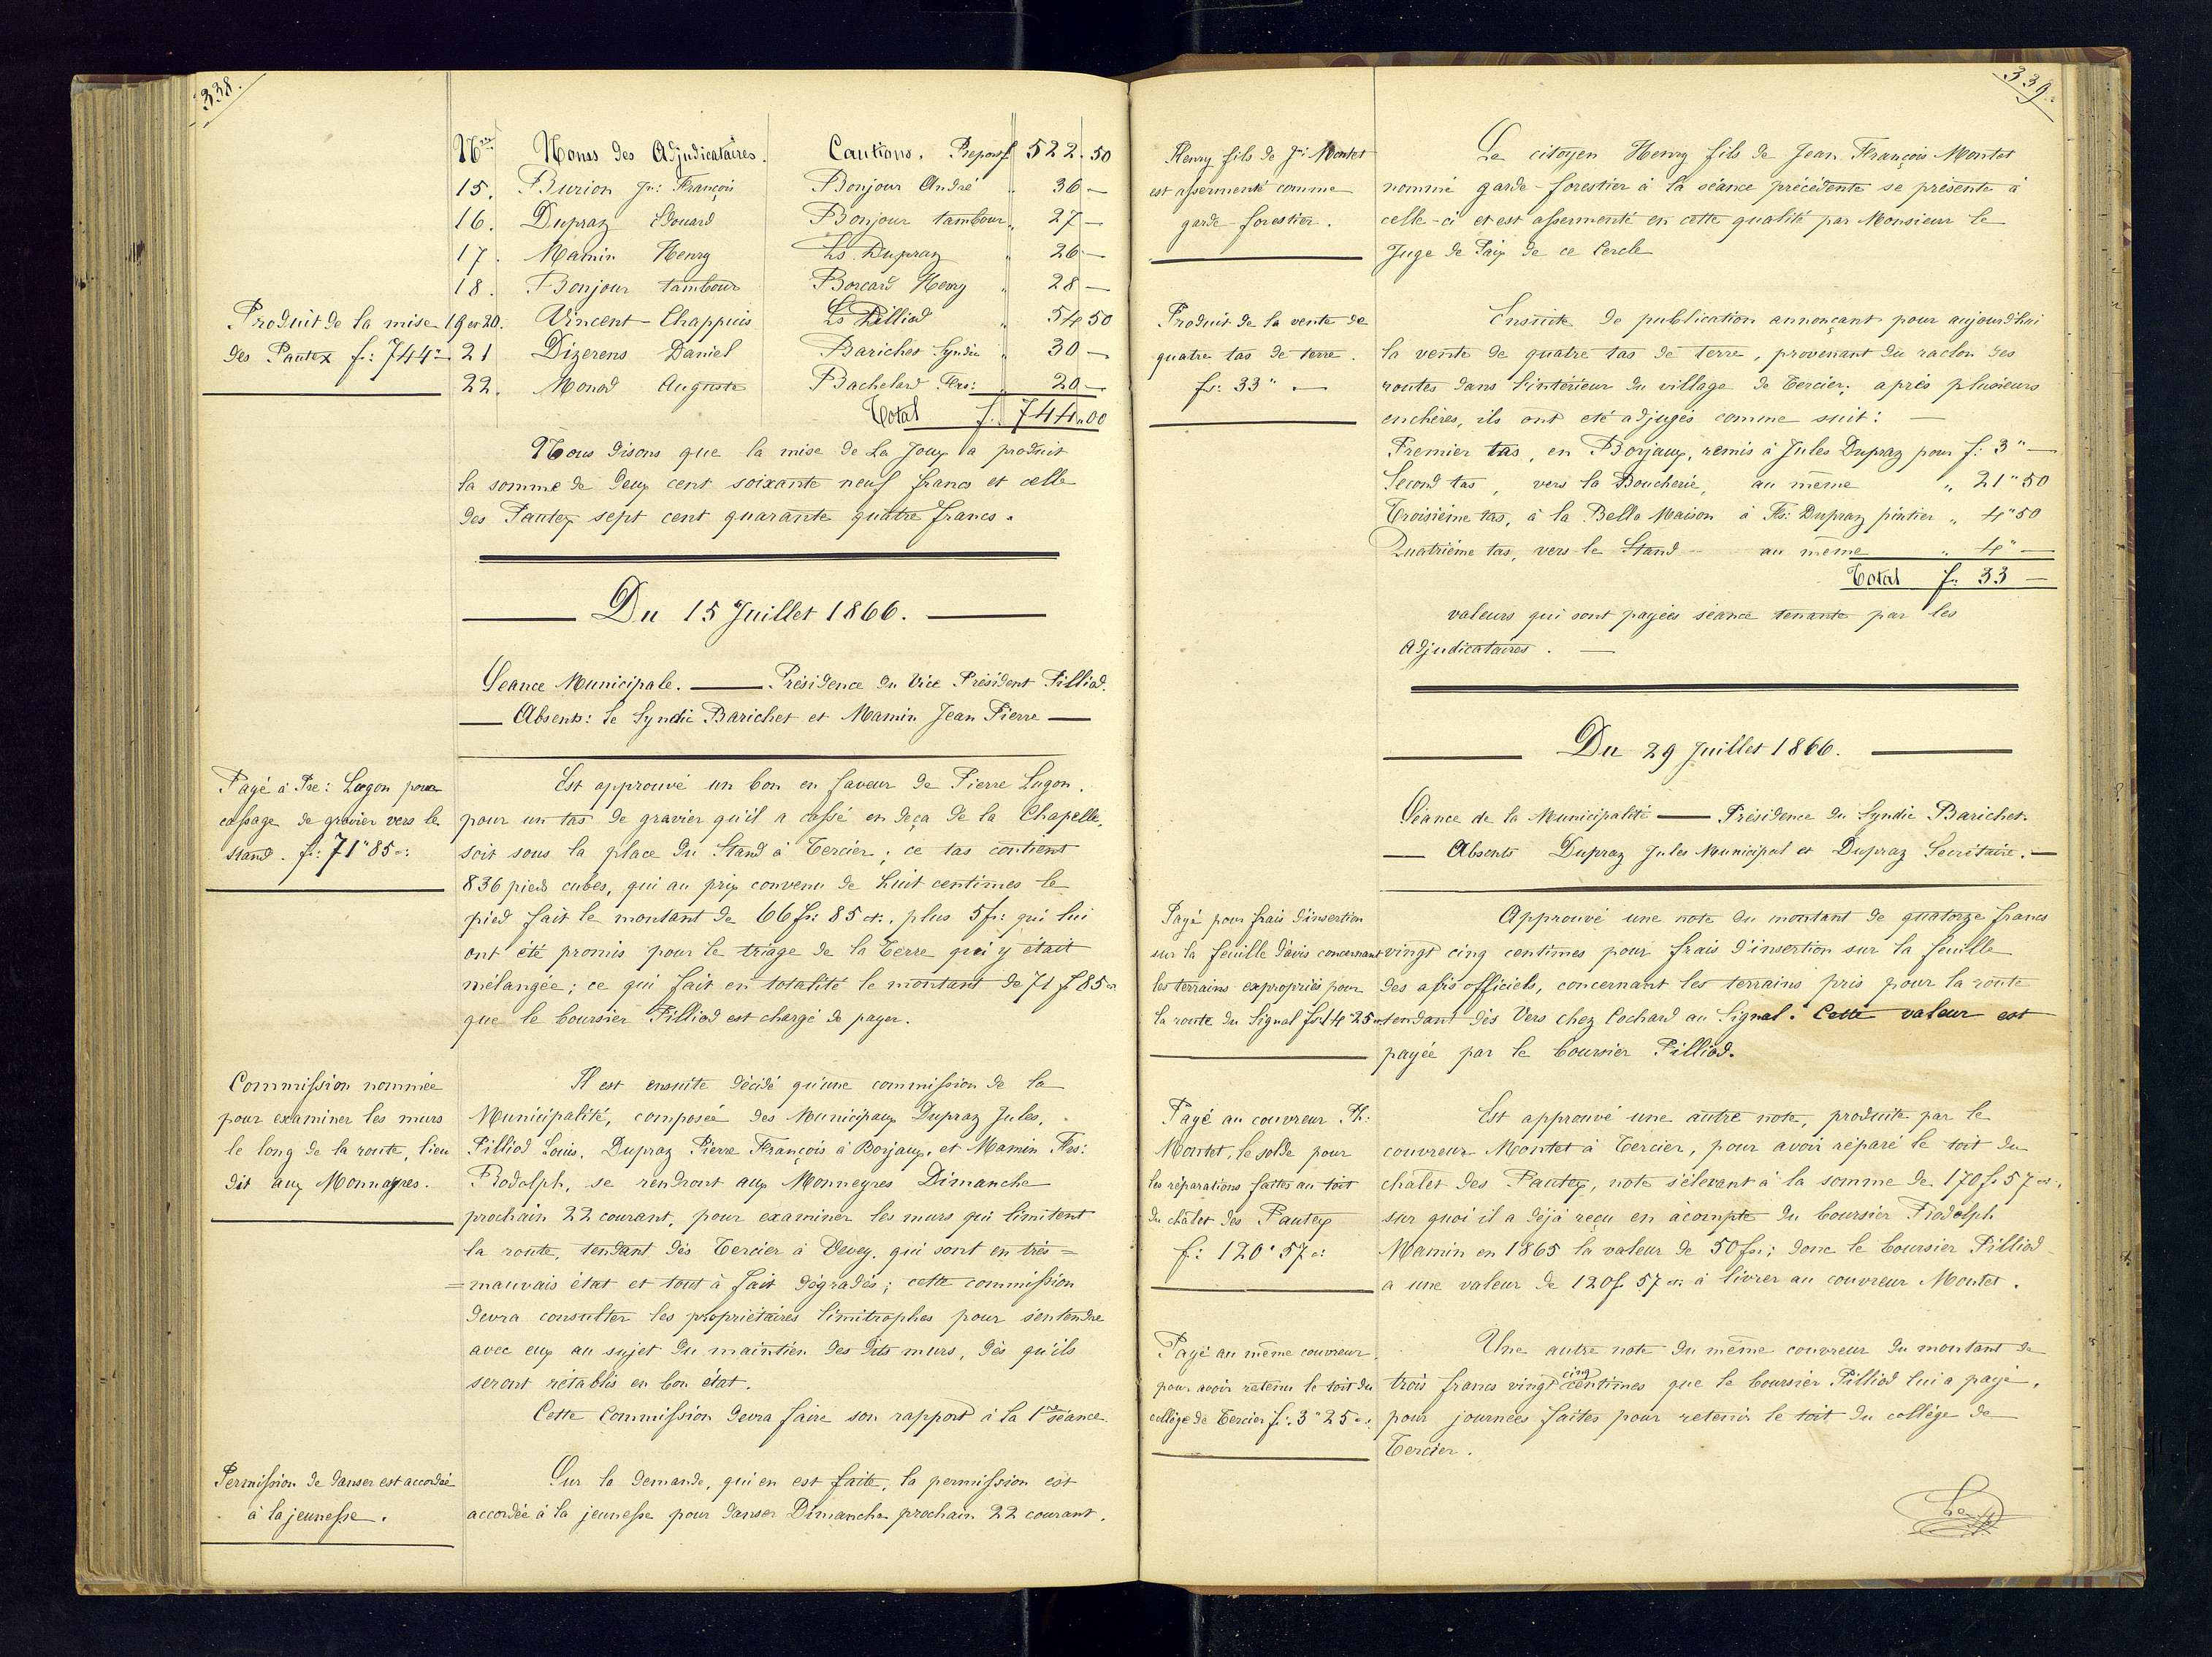 338.
Nos Noms des Adjudicataires. Cautions. Report f 522.50
15. Burion Jn: François Bonjour André " 36 —
16. Dupraz Edouard Bonjour tambour " 27 —
17. Mamin Henry Ls Dupraz " 26 —
18. Bonjour tambour Borcard Henry " 28 —
19 et 20. Vincent Chappuis Ls Pilliod " 54 50
21 Dizerens Daniel Barichet Syndic " 30 —
22. Monod Auguste Bachelard Frs: " 20 —
Total f. 744.00
Produit de la mise
des Pautex f: 744 "
Nous disons que la mise de La Joux a produit
la somme de deux cent soixante neuf francs et celle
des Pautex sept cent quarante quatre francs.
Du 15 Juillet 1866.
Séance Municipale. — Présidence du Vice Président Pilliod.
— Absents: le Syndic Barichet et Mamin Jean Pierre —
Payé à Pre: Lugon pour
cassage de gravier vers le
stand. f: 71 " 85 c:
Est approuvé un bon en faveur de Pierre Lugon.
pour un tas de gravier qu'il a cassé en deça de la Chapelle,
soit sous la place du Stand à Tercier; ce tas contient
836 pieds cubes, qui au prix convenu de huit centimes le
pied fait le montant de 66 fr: 85 ct:, plus 5 fr: qui lui
ont été promis pour le triage de la terre qui y était
mélangée; ce qui fait en totalité le montant de 71 f 85 ct
que le boursier Pilliod est chargé de payer.
Commission nommée
pour examiner les murs
le long de la route, lieu
dit aux Monnayres.
Il est ensuite décidé qu'une commission de la
Municipalité, composée des Municipaux Dupraz Jules,
Pilliod Louis, Dupraz Pierre François à Borjaux, et Mamin Frs:
Rodolph, se rendront aux Monneyres Dimanche
prochain 22 courant, pour examiner les murs qui limitent
la route, tendant dès Tercier à Vevey, qui sont en très=
=mauvais état et tout à fait dégradés; cette commission
devra consulter les propriétaires limitrophes pour s'entendre
avec eux au sujet du maintien des dits murs, dès qu'ils
seront rétablis en bon état.
Cette Commission devra faire son rapport à la 1re séance.
Permission de danser est accordée
à la jeunesse.
Sur la demande, qui en est faite, la permission est
accordée à la jeunesse pour danser Dimanche prochain 22 courant.
339.
Henry fils de Jn: Montet
est assermenté comme
garde-forestier.
Le citoyen Henry fils de Jean François Montet
nommé garde-forestier à la séance précédente se présente à
celle-ci et est assermenté en cette qualité par Monsieur le
Juge de Paix de ce Cercle
Produit de la vente de
quatre tas de terre.
fr: 33 " —
Ensuite de publication annonçant pour aujourd'hui
la vente de quatre tas de terre, provenant du raclon des
routes dans l'intérieur du village de Tercier; après plusieurs
enchères, ils ont été adjugés comme suit: —
Premier tas, en Borjaux, remis à Jules Dupraz pour f: 3 " —
Second tas, vers la Boucherie, au même " 21 " 50
Troisième tas, à la Belle Maison à Fs: Dupraz pintier " 4 " 50
Quatrième tas, vers le Stand au même " 4 " —
Total f: 33 —
valeurs qui sont payées séance tenante par les
Adjudicataires. —
Du 29 Juillet 1866.
Séance de la Municipalité — Présidence du Syndic Barichet.
— Absents Dupraz Jules Municipal et Dupraz Secrétaire. —
Payé pour frais d'insertion
sur la feuille d'avis concernant
les terrains expropriés pour
la route du Signal fr: 14 " 25 ct
Approuvé une note du montant de quatorze francs
vingt cinq centimes pour frais d'insertion sur la feuille
des avis officiels, concernant les terrains pris pour la route
tendant dès Vers chez Cochard au Signal. Cette valeur est
payée par le boursier Pilliod.
Payé au couvreur Ph:
Montet, le solde pour
les réparations faites au toit
du châlet des Pautex
f: 120 " 57 c:
Est approuvé une autre note, produite par le
couvreur Montet à Tercier, pour avoir réparé le toit du
chalet des Pautex, note s'élevant à la somme de 170 f. 57 ct.
sur quoi il a déjà reçu en acompte du boursier Rodolph
Mamin en 1865 la valeur de 50 fr:; donc le boursier Pilliod
a une valeur de 120 f. 57 ct. à livrer au couvreur Montet.
Payé au même couvreur,
pour avoir retenu le toit du
collège de Tercier f: 3 " 25 c:
Une autre note du même couvreur du montant de
trois francs vingt cinq centimes que le boursier Pilliod lui a payé,
pour journées faites pour retenir le toit du collège de
Tercier.